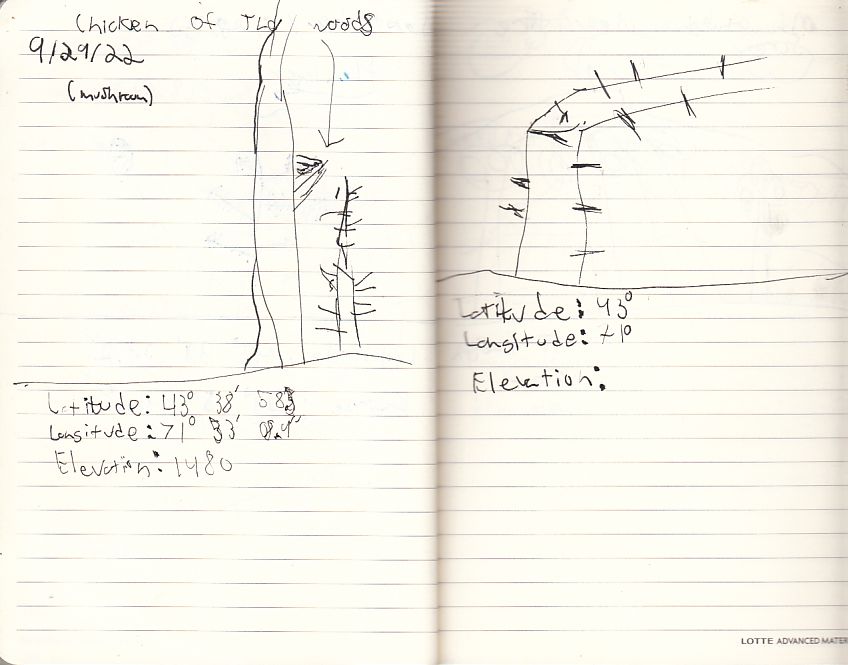 Chicken of The woods
9/29/22
(mushroom)
Latitude: 43° 38'
Longitude: 71° 33'
Elevation: 1480
Latitude: 43°
Longitude: 71°
Elevation:
LOTTE ADVANCED MATER